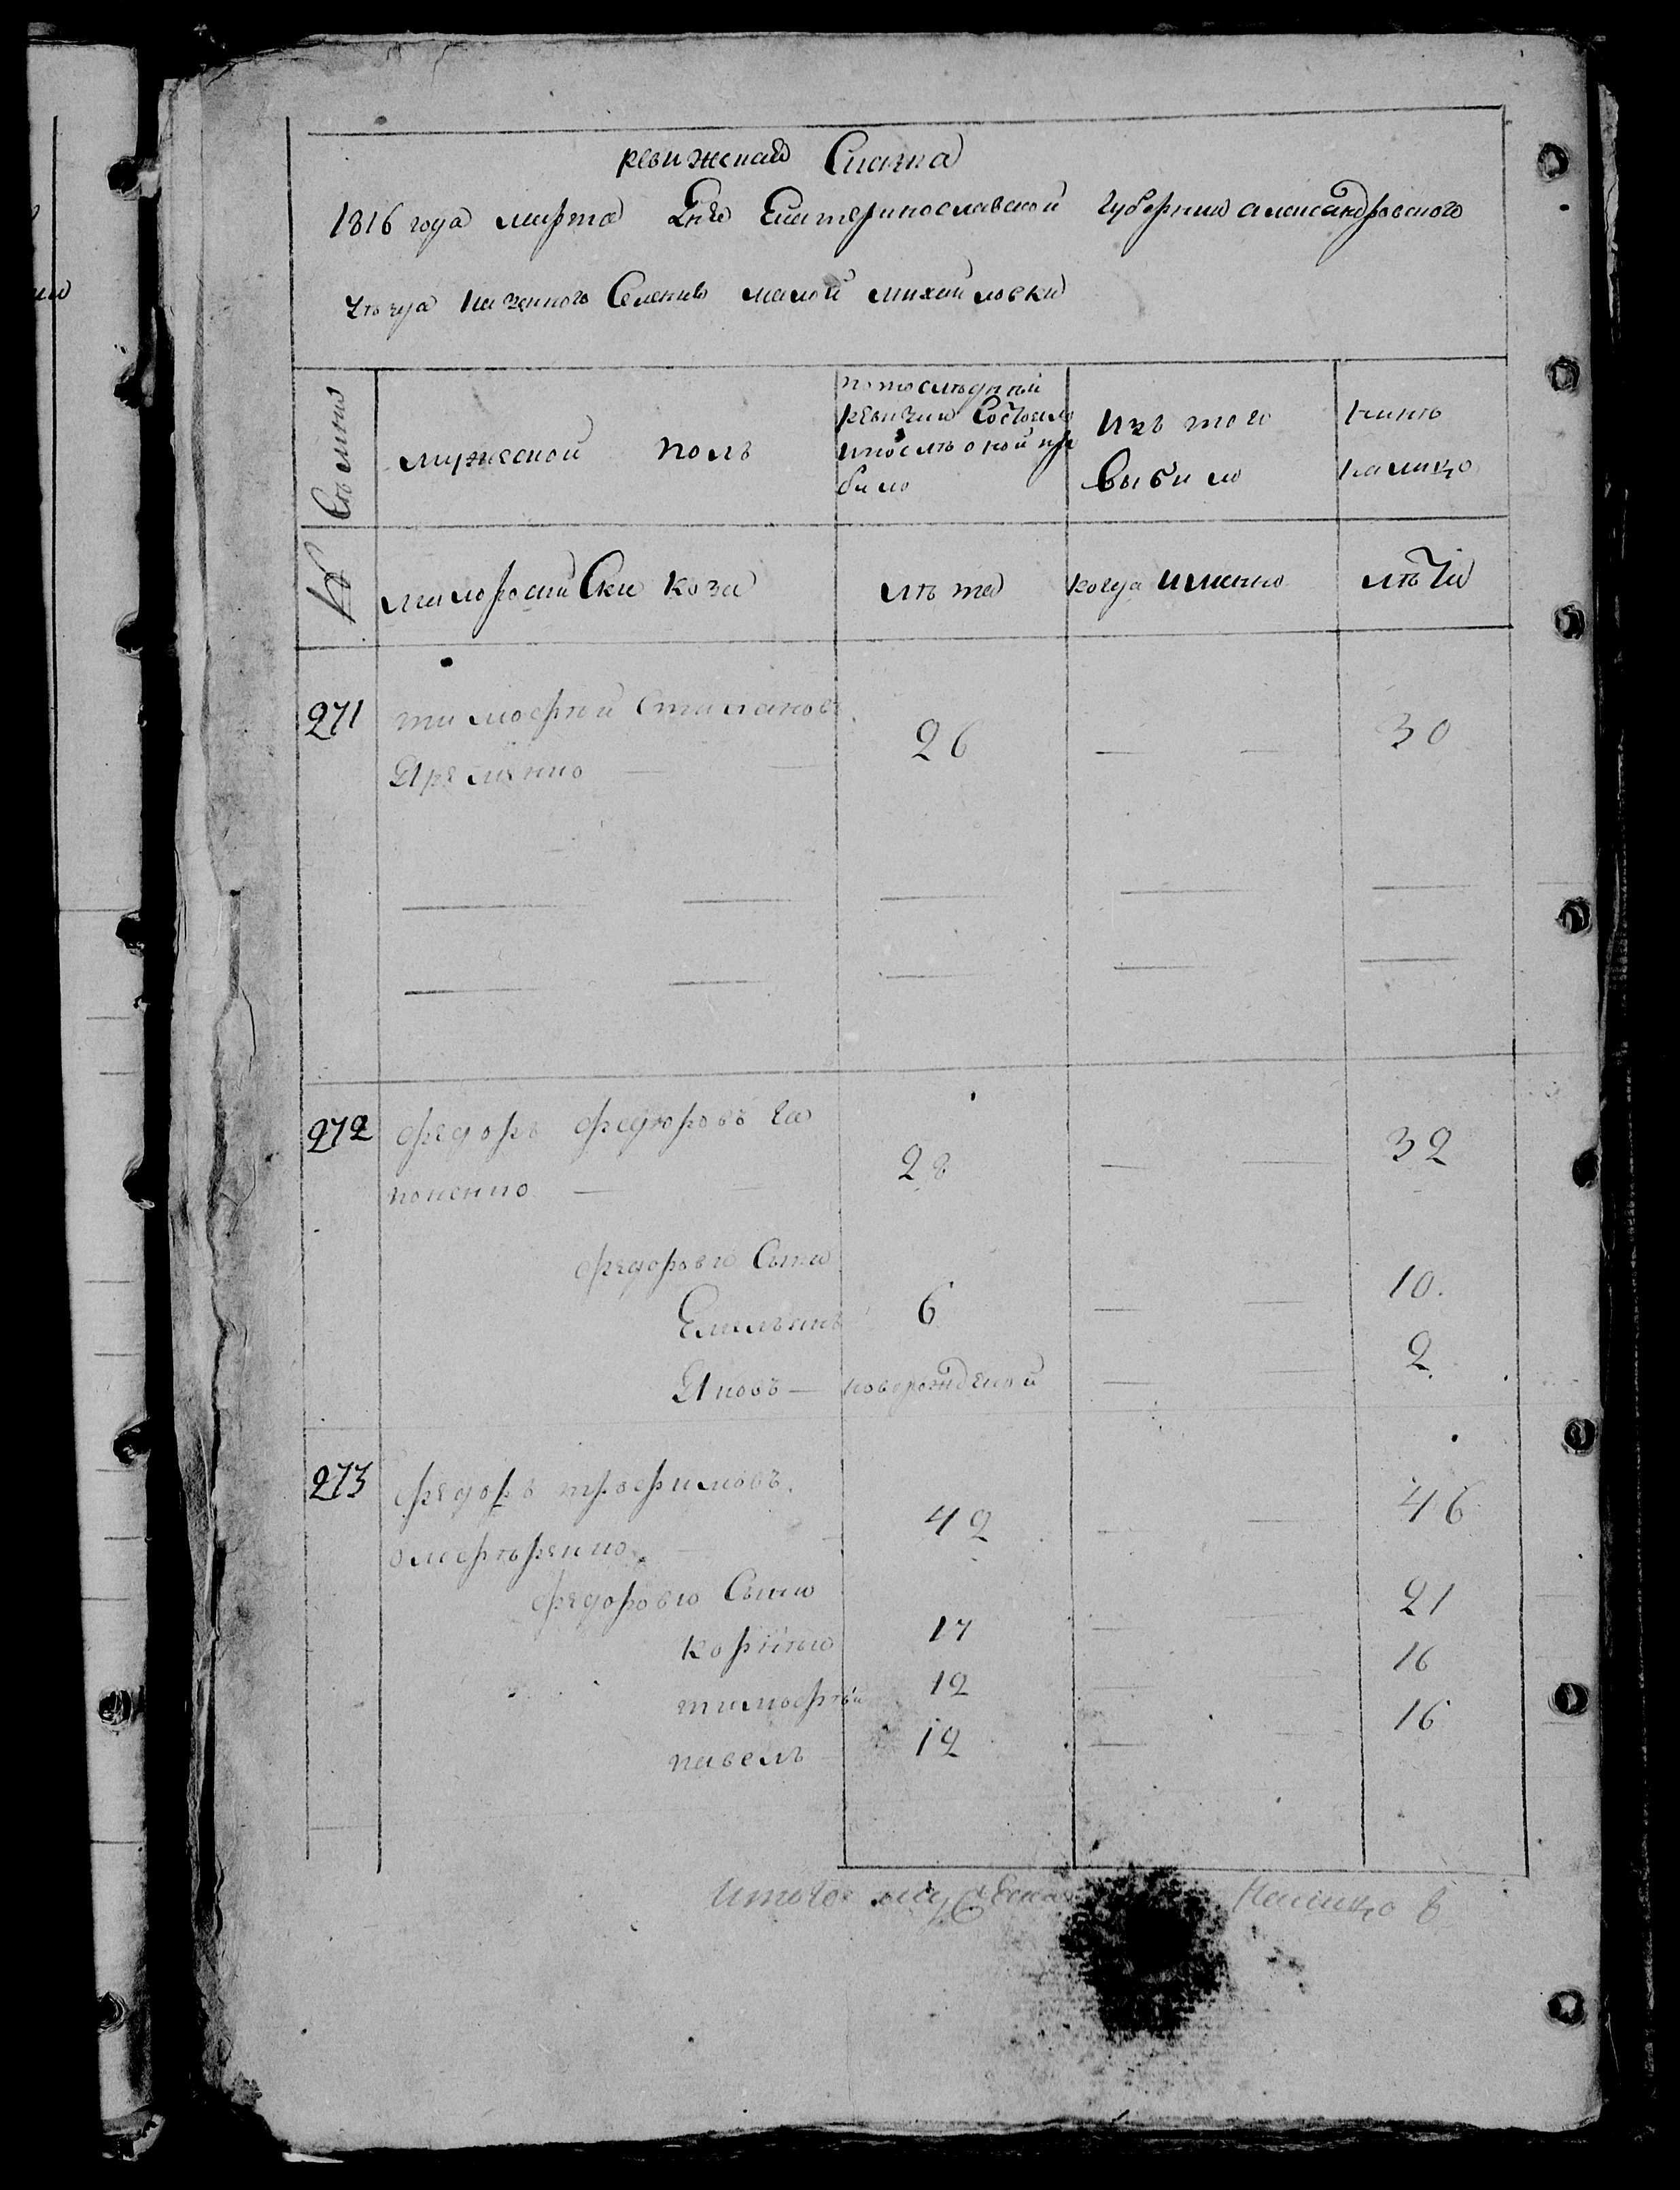 ревижская Скаска
1816 года марта дня Екатеринославской Губернии александровского
уезда казенного Селения малой михайловки
Семьи
мужеской полъ
по последней
ревизии Состояло
и после оной при
било
Изъ того
выбило
нынѣ
налицо
№
малоросийские коза
лѣта
когда именно
лѣта
271 тимофей Степановъ
Яременко — — 26 — — 30
272 федоръ федоровъ Га
поненко — — 28 — — 32
федоровы Сыны
Емельянъ 6 — — 10.
Яковъ — новорожденой — — 2
273 федоръ трофимовъ
42 — — 46
федоровы Сыны
корней 17 — — 21
тимофей 12 — — 16
павелъ 12 — — 16
Итого мужеска налицо 8